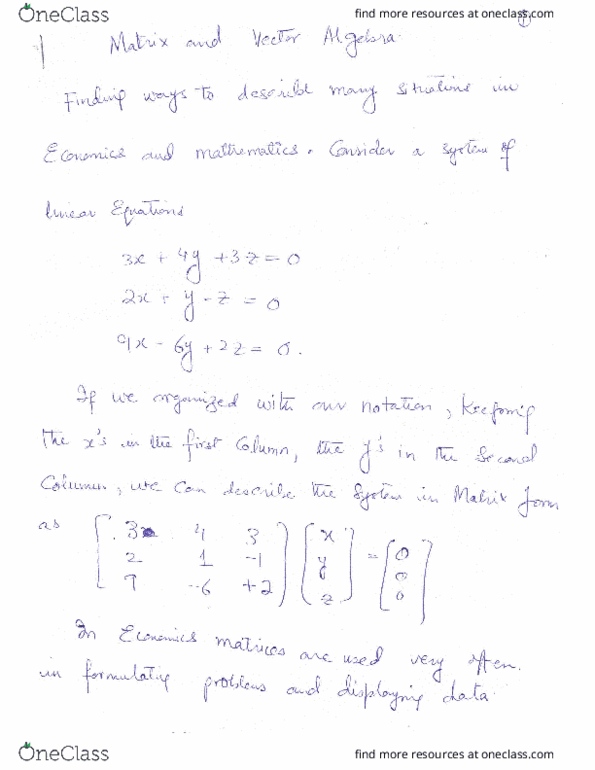 OneClass
find more resources at oneclass.com
1
Matrix and Vector Algebra.
Finding ways to describe many situations in
Economics and mathematics. Consider a system of
linear Equations
3x + 4y + 3z = 0
2x + y - z = 0
9x - 6y + 2z = 0.
If we organized with our notation,
the x's in the first Column, the y's in the Second
Column, we can describe the System in Matrix form
as [ 3 4 3 ] [ x ] = [ 0 ]
2 1 -1 y 0
7 -6 +2 z 0
In Economics matrices are used very often.
in formulating problems and displaying data.
OneClass
find more resources at oneclass.com